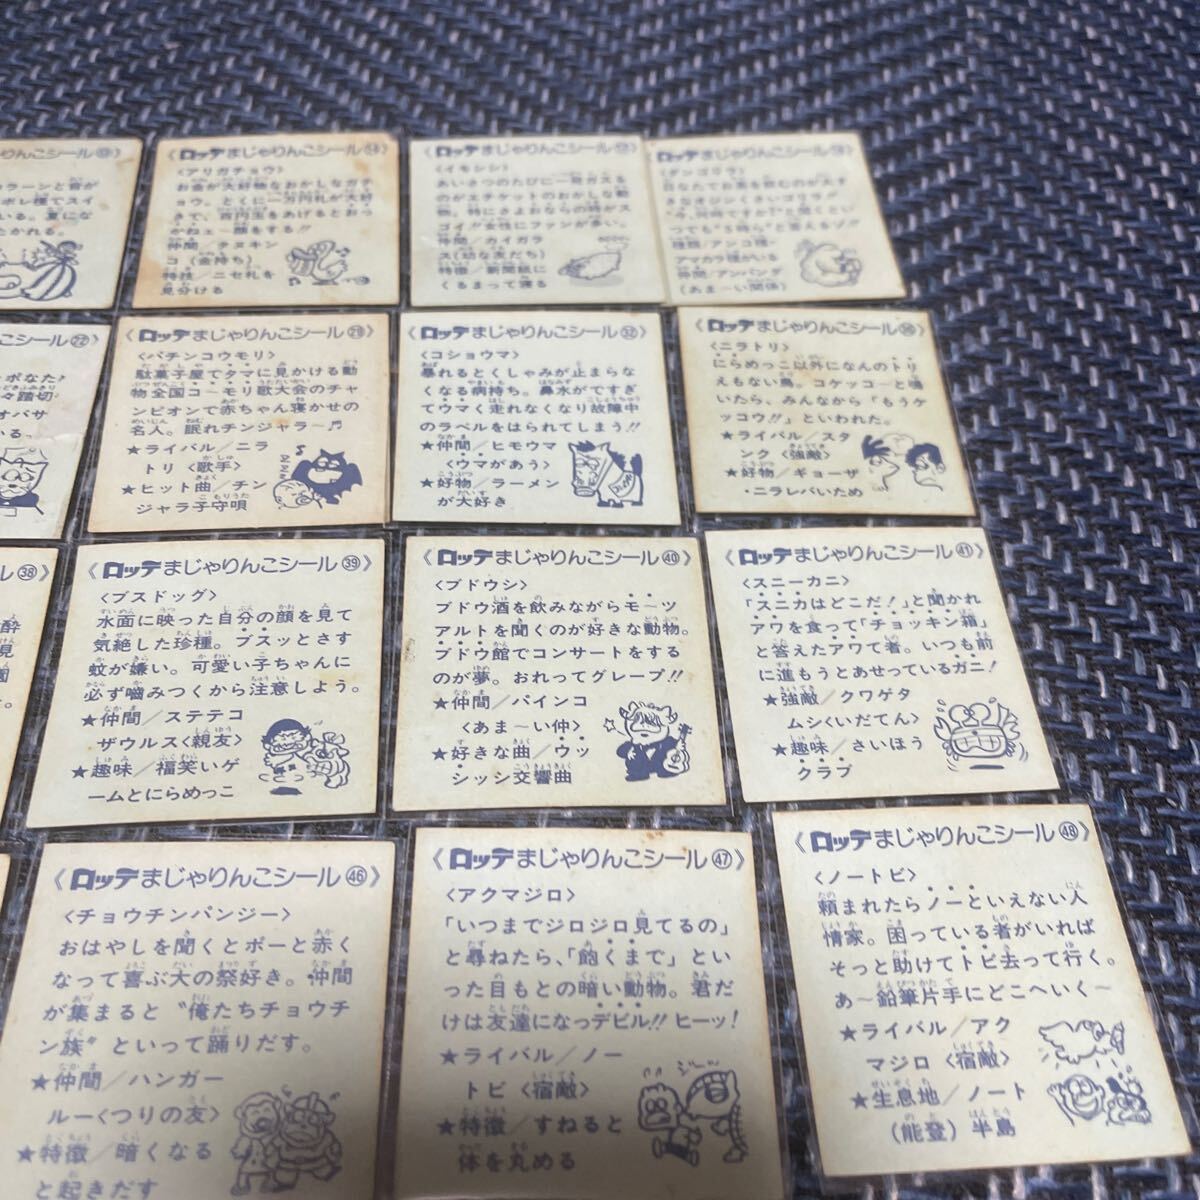 《ロッテまじゃりんこシール
〈アリガチョウ〉
お金が大好物なおかしなガチ
ョウ。とくに一万円札が大好
きで、百円玉をあげるとおっ
かねェ〜顔をする!!
仲間/チヌキン
コ(金持ち)
特技/ニセ札を
見分ける
《ロッテまじゃりんこシール
〈イモシシ〉
あいさつのたびに一発ガスる
のがエチケットのおかしな動
物。特にさよおならの時がス
ゴイ!!女性にファンが多い。
仲間/カイガラ
ス(幼な友だち)
特徴/新聞紙に
くるまって寝る
《ロッテまじゃりんこシール
〈ダンゴリラ〉
日なたでお茶を飲むのが大す
きなオジンくさいゴリラ!!
"今、何時ですか?"と聞くとい
つでも"3時ら"と答えるゾ!!
種類/アンコ種・
アマカラ種がいる
仲間/アンパンダ
(あま〜い関係)
《ロッテまじゃりんこシール㉙》
〈パチンコウモリ〉
駄菓子屋でタマに見かける動
物。全国コ〜モリ歌大会のチャ
ンピオンで赤ちゃん寝かせの
名人。眠れチンジャラ〜♬
★ライバル/ニラ
トリ〈歌手〉
★ヒット曲/チン
ジャラ子守唄
《ロッテまじゃりんこシール㉜》
〈コショウマ〉
暴れるとくしゃみが止まらな
くなる病持ち。鼻水がですぎ
てウマく走れなくなり故障中
のラベルをはられてしまう!!
★仲間/ヒモウマ
〈ウマがあう〉
★好物/ラーメン
が大好き
《ロッテまじゃりんこシール㊱》
〈ニラトリ〉
にらめっこ以外になんのトリ
えもない鳥。コケッコ〜と鳴
いたら、みんなから「もうケ
ッコウ!!」といわれた。
★ライバル/スタ
ンク〈強敵〉
★好物/ギョーザ
・ニラレバいため
《ロッテまじゃりんこシール㊴》
〈ブスドッグ〉
水面に映った自分の顔を見て
気絶した珍種。ブスッとさす
蚊が嫌い。可愛い子ちゃんに
必ず噛みつくから注意しよう。
★仲間/ステテコ
ザウルス〈親友〉
★趣味/福笑いゲ
ームとにらめっこ
《ロッテまじゃりんこシール㊵》
〈ブドウシ〉
ブドウ酒を飲みながらモ〜ツ
アルトを聞くのが好きな動物。
ブドウ館でコンサートをする
のが夢。おれってグレープ!!
★仲間/パインコ
〈あま〜い仲〉
★好きな曲/ウッ
シッシ交響曲
《ロッテまじゃりんこシール㊶》
〈スニーカニ〉
「スニカはどこだ!」と聞かれ
アワを食って「チョッキン箱」
と答えたアワて者。いつも前
に進もうとあせっているガニ!
★強敵/クワゲタ
ムシ〈いだてん〉
★趣味/さいほう
クラブ
《ロッテまじゃりんこシール㊻》
〈チョウチンパンジー〉
おはやしを聞くとボーと赤く
なって喜ぶ大の祭好き。仲間
が集まると"俺たちチョウチ
ン族"といって踊りだす。
★仲間/ハンガー
ルー〈つりの友〉
★特徴/暗くなる
と起きだす
《ロッテまじゃりんこシール㊼》
〈アクマジロ〉
「いつまでジロジロ見てるの」
と尋ねたら、「飽くまで」とい
った目もとの暗い動物。君だ
けは友達になっデビル!!ヒーッ!
★ライバル/ノー
トビ〈宿敵〉
★特徴/すねると
体を丸める
《ロッテまじゃりんこシール㊽》
〈ノートビ〉
頼まれたらノーといえない人
情家。困っている者がいれば
そっと助けてトビ去って行く。
あ〜鉛筆片手にどこへいく〜
★ライバル/アク
マジロ〈宿敵〉
★生息地/ノート
(能登)半島